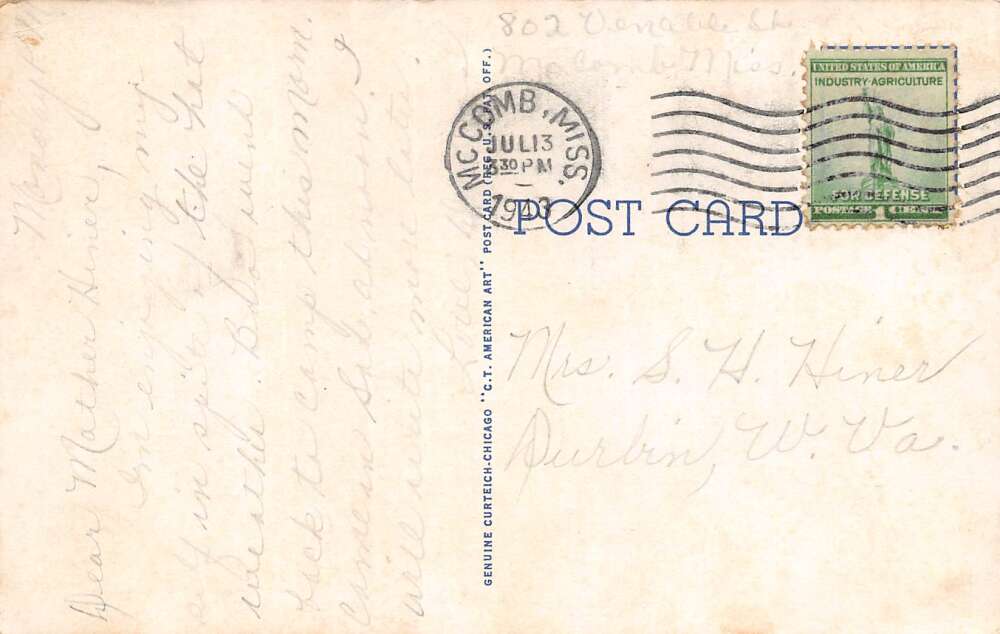 802 Venable St.
McComb Miss.
UNITED STATES OF AMERICA
INDUSTRY·AGRICULTURE
FOR DEFENSE
POSTAGE 1 CENT
MC COMB, MISS.
JUL 13
3 30 PM
1943
POST CARD
Mrs. S. H. Hiner
Durbin, W. Va.
GENUINE CURTEICH-CHICAGO "C.T. AMERICAN ART" POST CARD (REG. U.S. PAT. OFF.)
Dear Mother Hiner,
I'm enjoying my
in spite of the hot
weather. B. went
back to camp this morn.
Coming in Sat.
will write more later.
Love